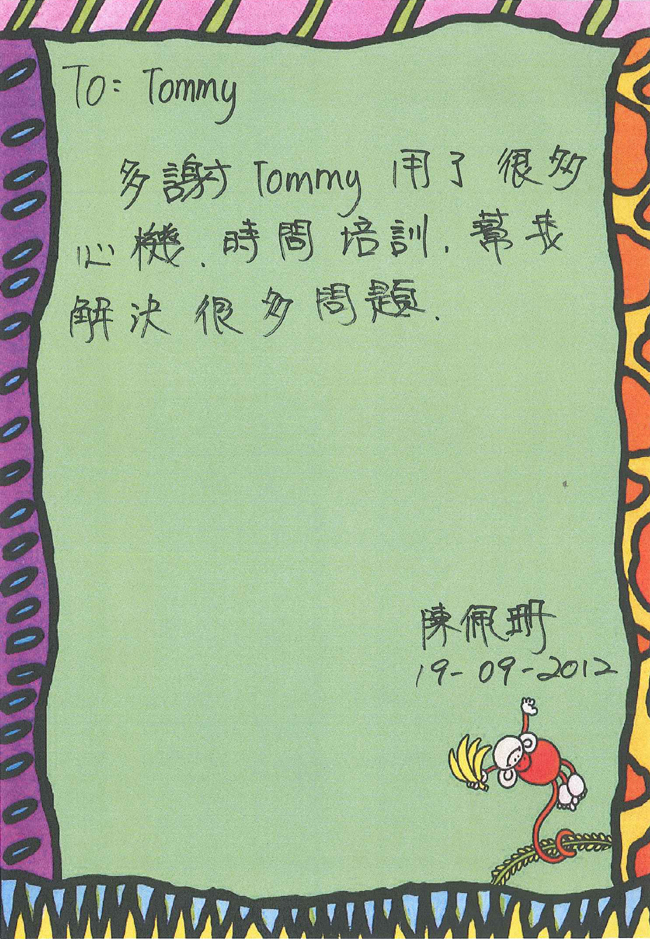 To: Tommy
多謝 Tommy 用了很多
心機、時間培訓,幫我
解決很多問題.
陳佩珊
19-09-2012